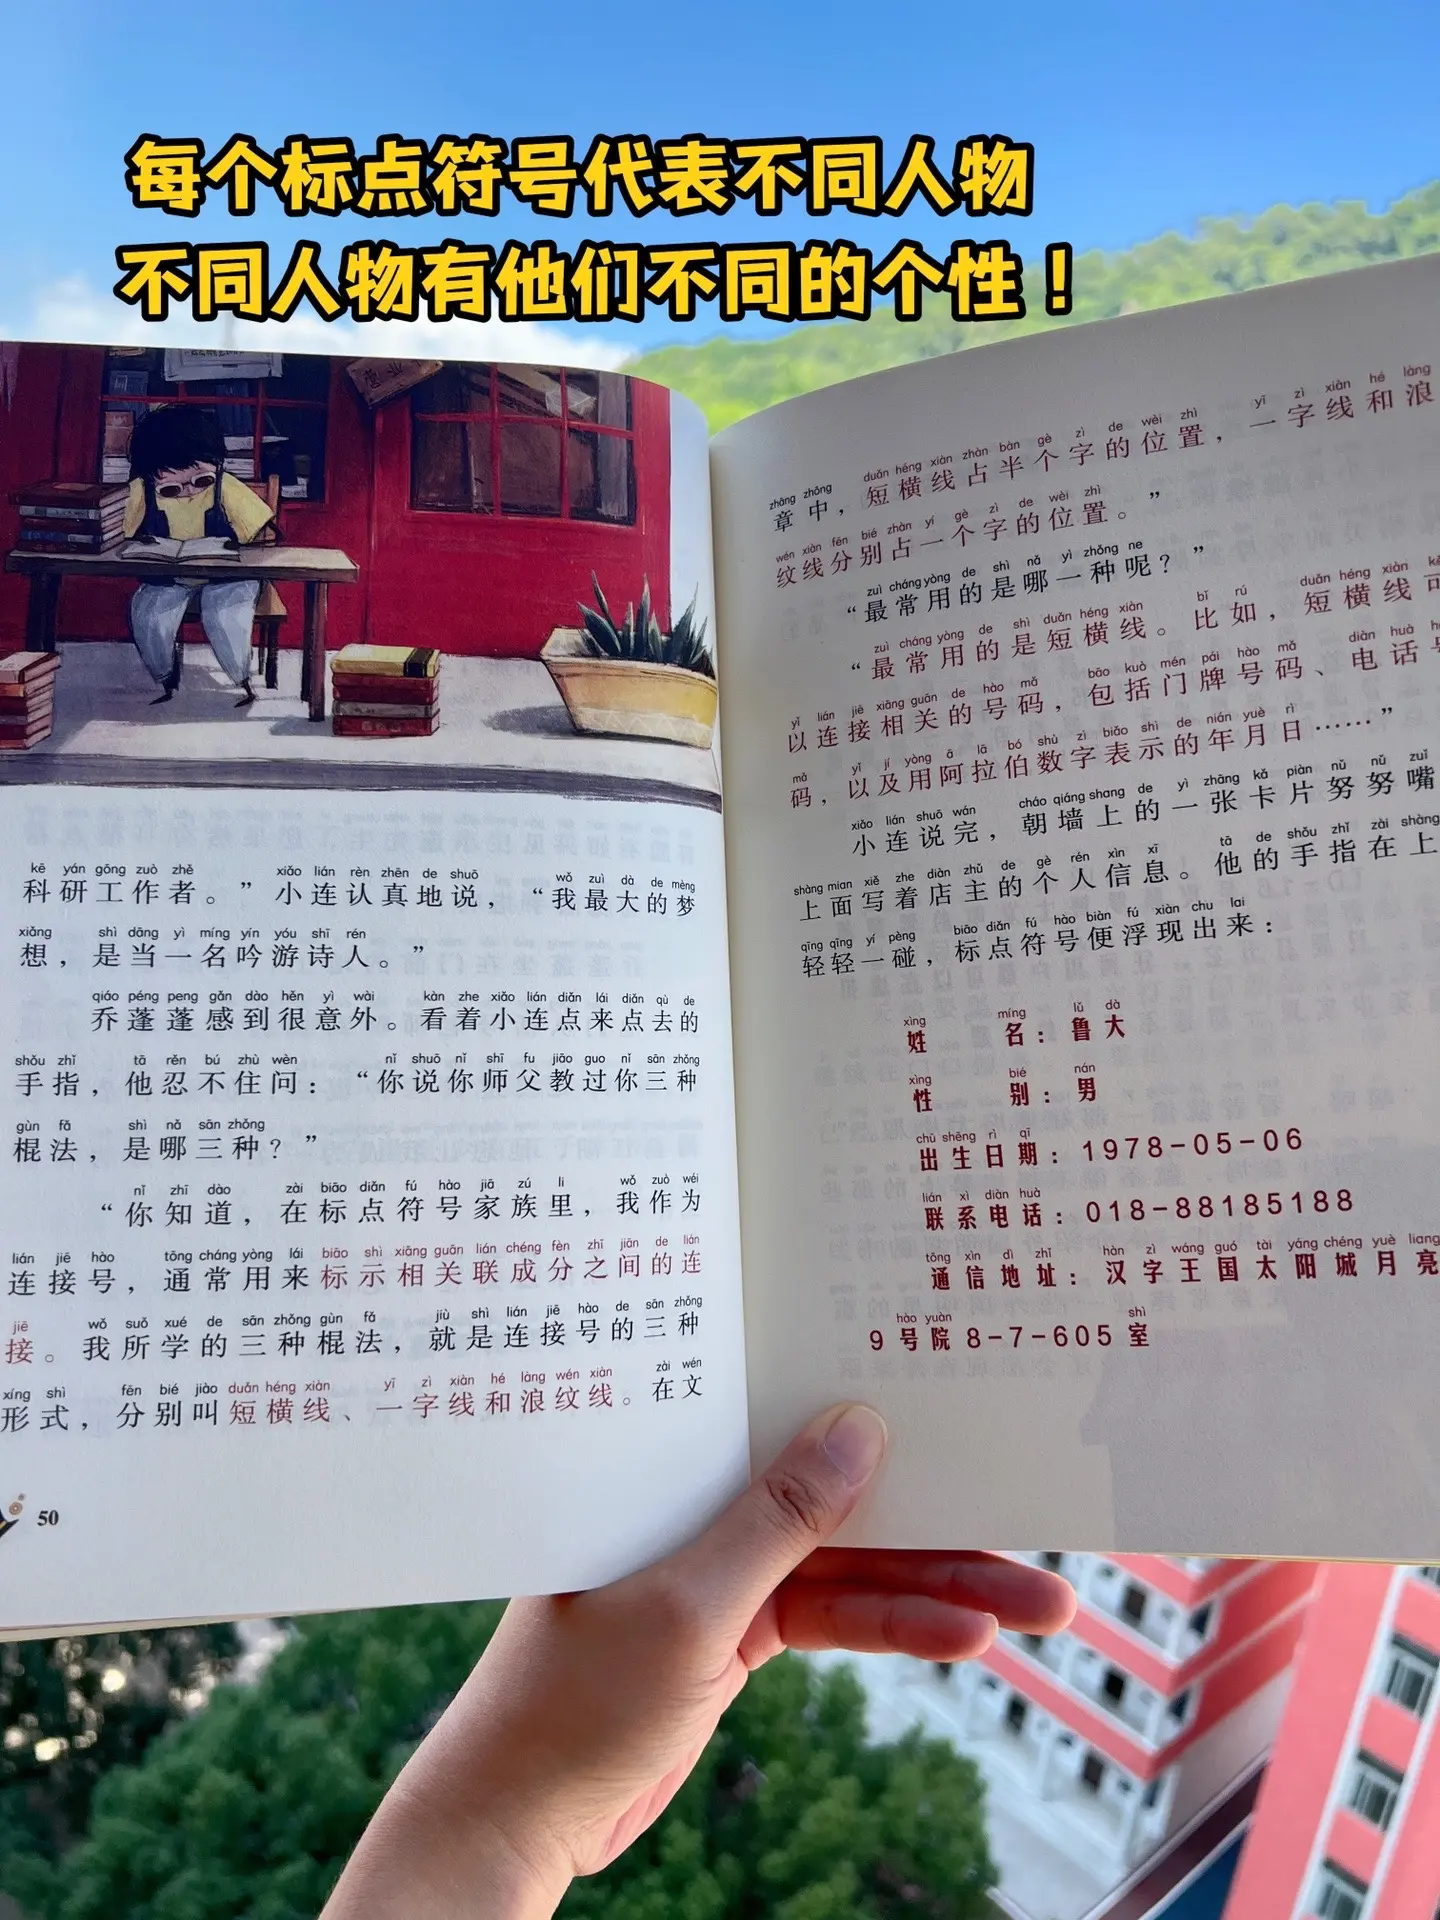 每个标点符号代表不同人物
不同人物有他们不同的个性！
kē yán gōng zuò zhě xiǎo lián rèn zhēn de shuō wǒ zuì dà de mèng
科研工作者。”小连认真地说，“我最大的梦
xiǎng shì dāng yì míng yín yóu shī rén
想，是当一名吟游诗人。”
qiáo péng peng gǎn dào hěn yì wài kàn zhe xiǎo lián diǎn lái diǎn qù de
乔蓬蓬感到很意外。看着小连点来点去的
shǒu zhǐ tā rěn bú zhù wèn nǐ shuō nǐ shī fu jiāo guo nǐ sān zhǒng
手指，他忍不住问：“你说你师父教过你三种
gùn fǎ shì nǎ sān zhǒng
棍法，是哪三种？”
nǐ zhī dào zài biāo diǎn fú hào jiā zú li wǒ zuò wéi
“你知道，在标点符号家族里，我作为
lián jiē hào tōng cháng yòng lái biāo shì xiāng guān lián chéng fèn zhī jiān de lián
连接号，通常用来标示相关联成分之间的连
jiē wǒ suǒ xué de sān zhǒng gùn fǎ jiù shì lián jiē hào de sān zhǒng
接。我所学的三种棍法，就是连接号的三种
xíng shì fēn bié jiào duǎn héng xiàn yī zì xiàn hé làng wén xiàn zài wén
形式，分别叫短横线、一字线和浪纹线。在文
50
zhāng zhōng duǎn héng xiàn zhàn bàn gè zì de wèi zhì yī zì xiàn hé làng
章中，短横线占半个字的位置，一字线和浪
wén xiàn fēn bié zhàn yí gè zì de wèi zhì
纹线分别占一个字的位置。”
zuì cháng yòng de shì nǎ yì zhǒng ne
“最常用的是哪一种呢？”
zuì cháng yòng de shì duǎn héng xiàn bǐ rú duǎn héng xiàn kě
“最常用的是短横线。比如，短横线可
yǐ lián jiē xiāng guān de hào mǎ bāo kuò mén pái hào mǎ diàn huà
以连接相关的号码，包括门牌号码、电话号
mǎ yǐ jí yòng ā lā bó shù zì biǎo shì de nián yuè rì
码，以及用阿拉伯数字表示的年月日……”
xiǎo lián shuō wán cháo qiáng shang de yì zhāng kǎ piàn nǔ nǔ zuǐ
小连说完，朝墙上的一张卡片努努嘴
shàng mian xiě zhe diàn zhǔ de gè rén xìn xī tā de shǒu zhǐ zài shàng
上面写着店主的个人信息。他的手指在上
qīng qīng yí pèng biāo diǎn fú hào biàn fú xiàn chu lai
轻轻一碰，标点符号便浮现出来：
xìng míng lǔ dà
姓 名：鲁大
xìng bié nán
性 别：男
chū shēng rì qī
出生日期：1978-05-06
lián xì diàn huà
联系电话：018-88185188
tōng xìn dì zhǐ hàn zì wáng guó tài yáng chéng yuè liang
通信地址：汉字王国太阳城月亮
hào yuàn shì
9号院8-7-605室